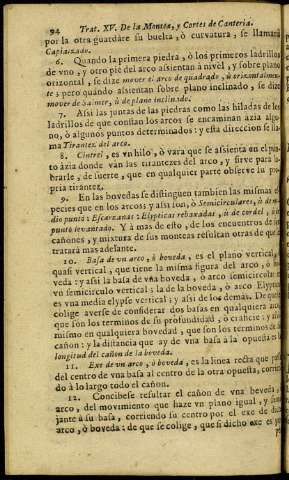 94 Trat. XV. De la Montea, y Cortes de Canteria.
por la otra guardàre su buelta, ò cuevatura, se llamarà
Capialzado.
6. Quando la primera piedra, ò los primeros ladrillos
de vno, y otro pie del arco assientan à nivèl, y sobre plano
orizontal, se dize mover el arco de quadrado, ù orizontalmen-
te; pero quando assientan sobre plano inclinado, se dize
mover de salmer, ù de plano inclinado.
7. Assi las juntas de las piedras como las hiladas de los
ladrillos de que constan los arcos se encaminan àzia algu-
no, ò algunos puntos determinados: y esta direccion se lla-
ma Tirantez del arco.
8. Cintrel, es vn hilo, ò vara que se assienta en el pun-
to àzia donde vàn las tirantezes del arco, y sirve para la-
brarle, de suerte, que en qualquier parte observe su pro-
pria tirantez.
9. En las bovedas se distinguen tambien las mismas es-
pecies que en los arcos: y assi son, ò Semicirculares, ù de me-
dio punto: Escarzanas: Elypticas rebaxadas, ù de cordel, ù de
punto levantado. Y à mas de esto, de los encuentros de sus
cañones, y mixtura de sus monteas resultan otras de que se
tratarà mas adelante.
10. Basa de vn arco, ò boveda, es el plano vertical, ò
quasi vertical, que tiene la misma figura del arco, ò bo-
veda: y assi la basa de vna boveda, ò arco semicircular es
vn semicirculo vertical: la de la boveda, ò arco Elyptico
es vna media elypse vertical; y assi de los demàs. De que se
colige averse de considerar dos basas en qualquiera arco,
que son los terminos de su profundidad, ò crasicie: y assi-
mismo en qualquiera bovedad, que son los terminos de su
cañon: y la distancia que ay de vna basa à la opuesta es la
longitud del cañon de la boveda.
11. Exe de vn arco, ò boveda, es la linea recta que passa
del centro de vna basa al centro de la otra opuesta, corrien-
do à lo largo todo el cañon.
12. Concibese resultar el cañon de vna boveda, ò
arco, del movimiento que haze vn plano igual, y seme-
jante à su basa, corriendo su centro por el exe de dicho
arco, ò boveda: de que se colige, que si dicho exe es per-